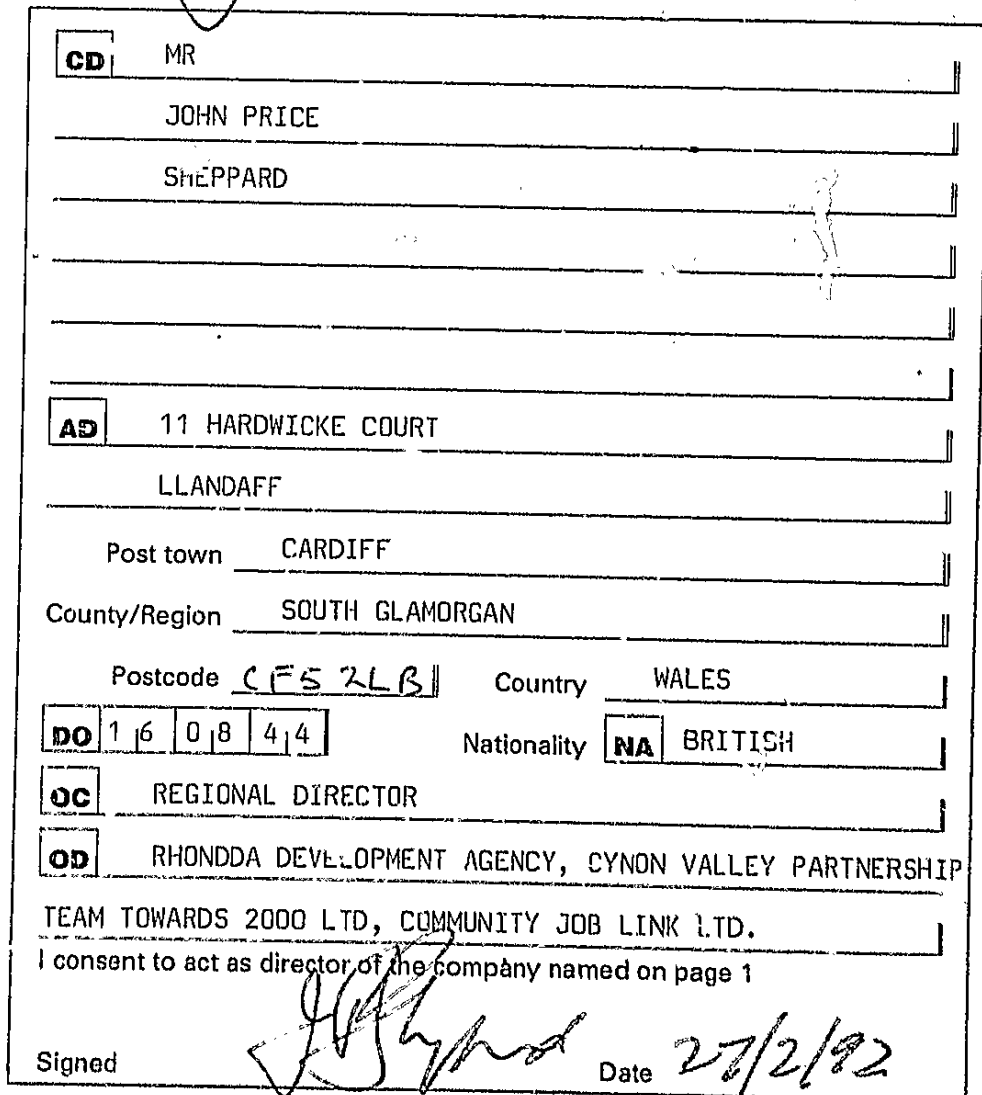 CD MR
JOHN PRICE
SHEPPARD
AD 11 HARDWICKE COURT
LLANDAFF
Post town CARDIFF
County/Region SOUTH GLAMORGAN
Postcode CF5 2LB Country WALES
DO 16 08 44 Nationality NA BRITISH
OC REGIONAL DIRECTOR
OD RHONDDA DEVELOPMENT AGENCY, CYNON VALLEY PARTNERSHIP
TEAM TOWARDS 2000 LTD, COMMUNITY JOB LINK LTD.
I consent to act as director of the company named on page 1
Signed Date 27/2/92